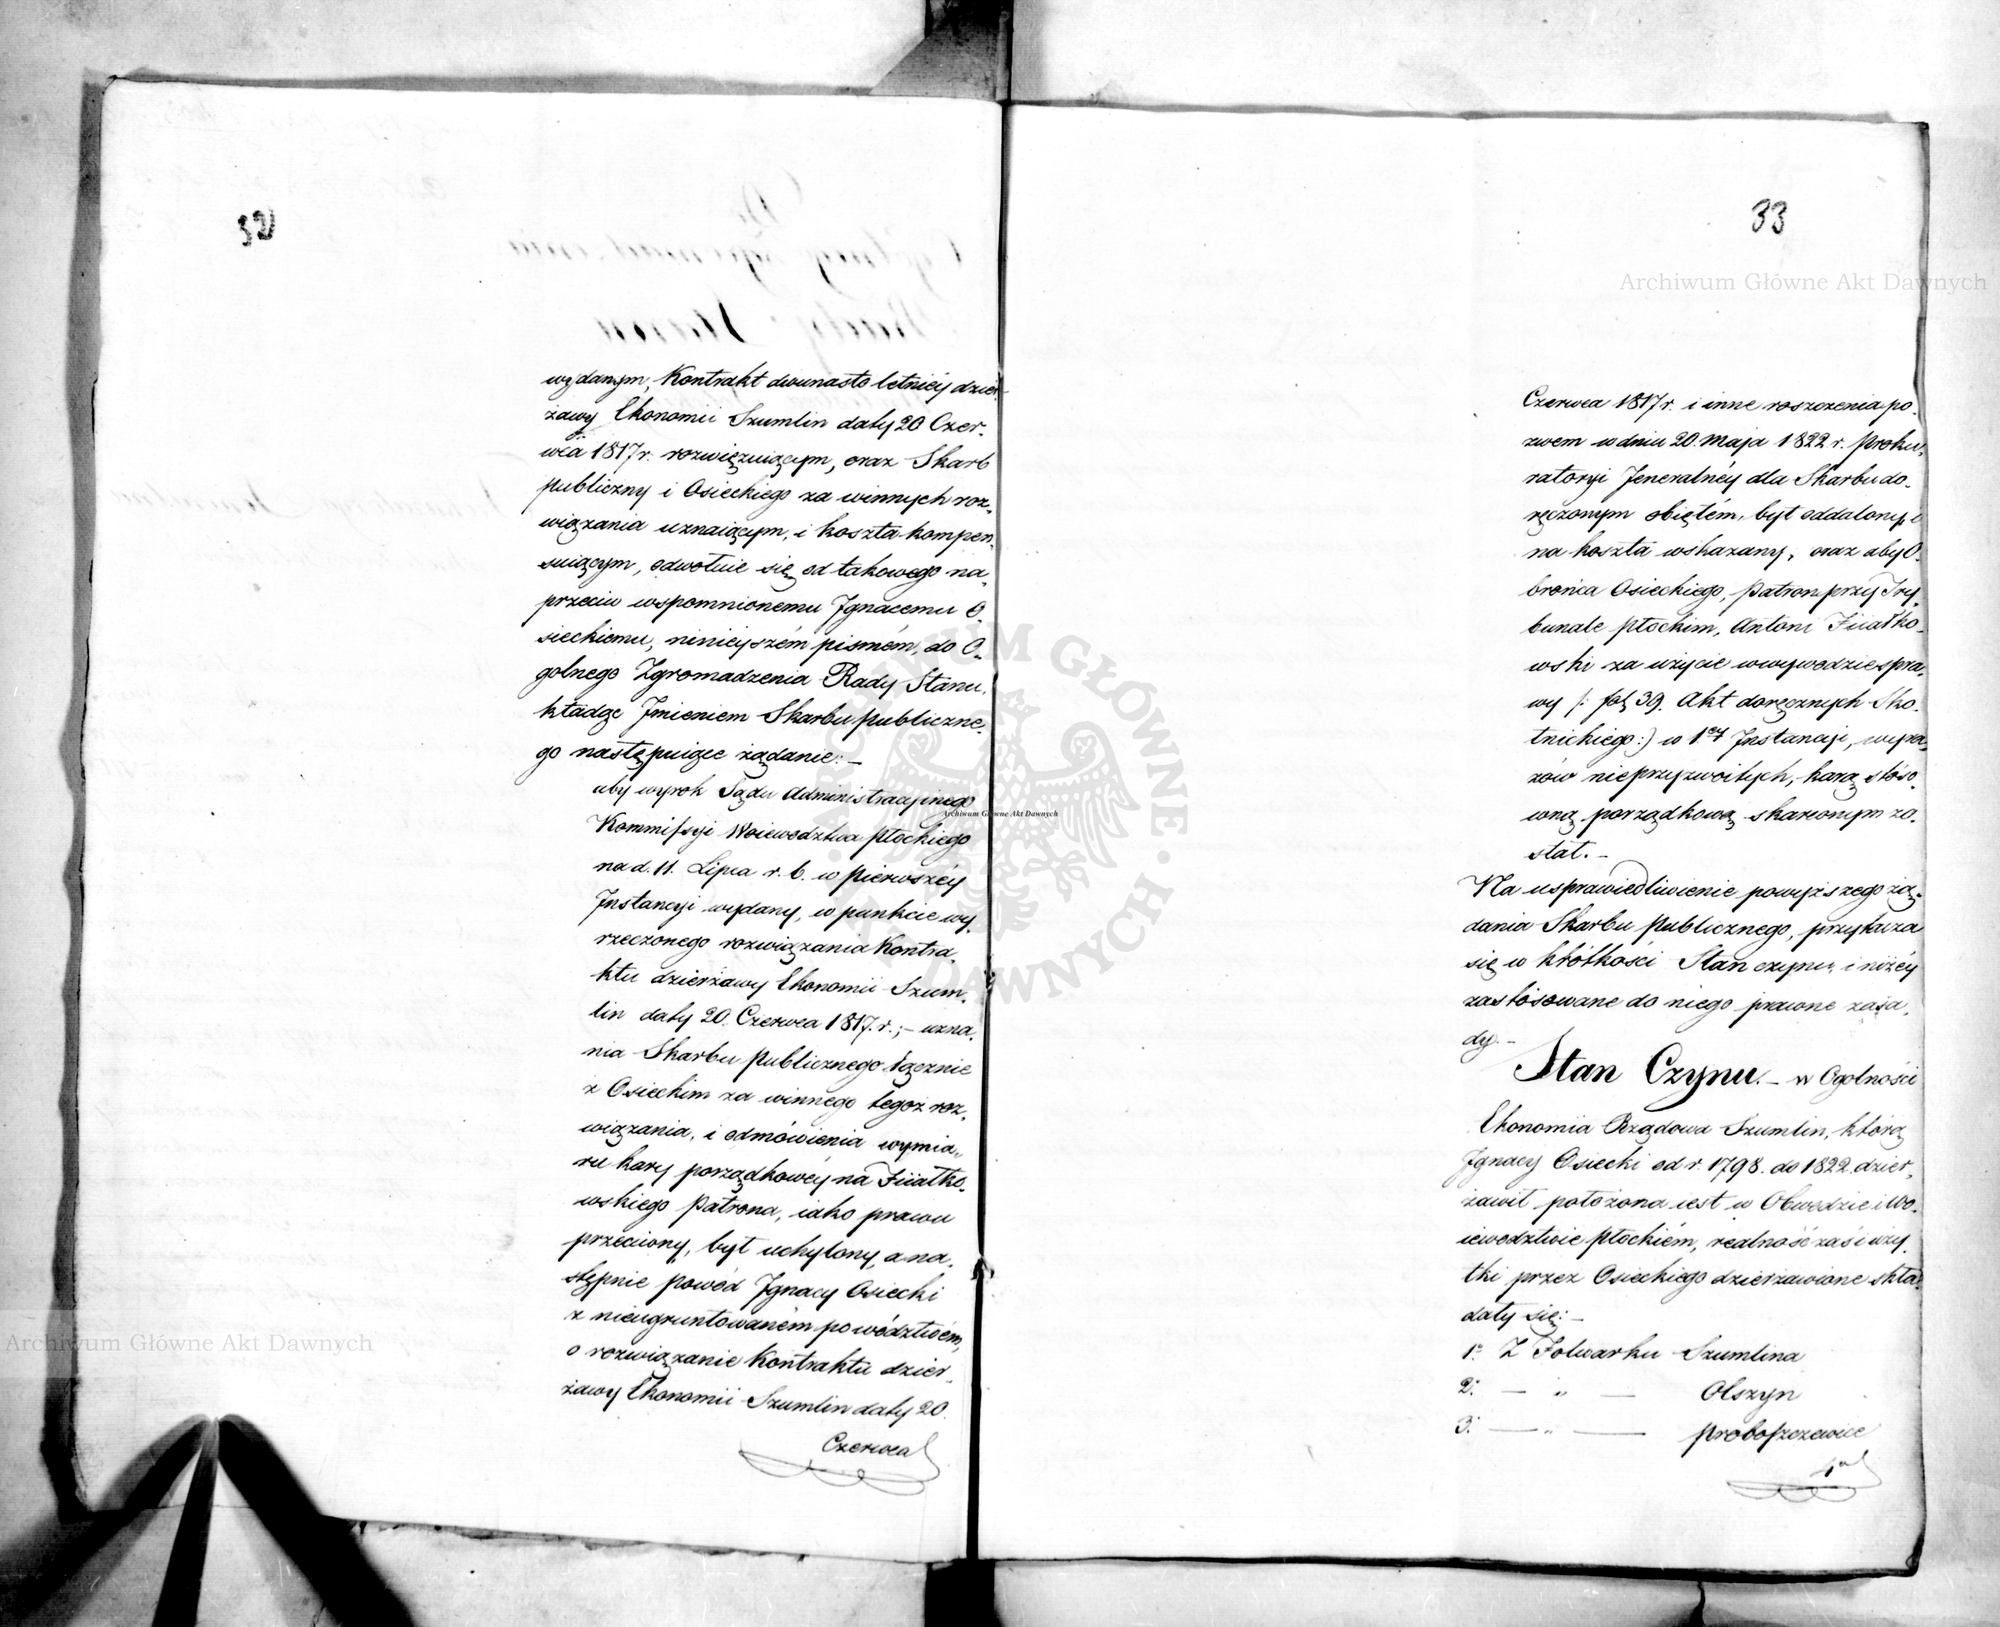 32
wydanym, Kontrakt dwunasto letniéy dzier,
żawy Ekonomii Szumlin daty 20 Czer,
wca 1817 r. rozwięzuiącym, oraz Skarb
publiczny i Osieckiego za winnych roz,
wiązania uznaiącym, i koszta kompen,
suiącym, odwołuie się od takowego na,
przeciw wspomnionemu Jgnacemu O,
sieckiemu, ninieyszém pismém, do O,
golnego Zgromadzenia Rady Stanu,
kładąc Jmieniem Skarbu publiczne,
go następuiące żądanie: –
aby wyrok Sądu Administracyinego
Kommissyi Woiewodztwa Płockiego
na d. 11. Lipca r. b. w pierwszéy
Jnstancyi wydany, w punkcie wy,
rzeczonego rozwiązania Kontra,
ktu dzierżawy Ekonomii Szum,
lin daty 20. Czerwca 1817. r.; – uzna,
nia Skarbu publicznego łącznie
z Osieckim za winnego tegoż roz,
wiązania, i odmówienia wymia,
ru kary porządkowéy na Fiiałko,
wskiego Patrona, iako prawu
przeciwny, był uchylony, a na,
stępnie powód Jgnacy Osiecki
z nieugruntowaném powództwém,
o rozwiązanie Kontraktu dzier,
żawy Ekonomii Szumlin daty 20.
Czerwca
33
Czerwca 1817 r. i inne roszczenia po,
zwem w dniu 20. Maja 1822 r. Proku,
ratoryi Jeneralnéy dla Skarbu do,
ręczonym obiętém, był oddalony i
na koszta wskazany, oraz aby O,
brońca Osieckiego, Patron przy Try,
bunale Płockim, Antoni Fiiałko,
wski za użycie w wywodzie spra,
wy /: fol 39. Akt doręcznych Sko,
tnickiego:) w 1éy Jnstancyi, wyra,
zów nieprzyzwoitych, karą stóso,
wną porządkową skarconym zo,
stał. –
Na usprawiedliwienie powyższego żą,
dania Skarbu publicznego, przytacza
się w krótkości Stan czynu, i niżéy
zastósowane do niego prawne zasa,
dy. –
Stan Czynu. – w Ogolności
Ekonomia Rządowa Szumlin, którą
Jgnacy Osiecki od r. 1798. do 1822. dzier,
żawił położona iest w Obwodzie i Wo,
iewodztwie Płockiém, realność zaś i uży,
tki przez Osieckiego dzierżawione skła,
dały się: –
1º. Z Folwarku Szumlina
2. — " — Olszyn
3. — " — Proboszczewice
4º
Archiwum Główne Akt Dawnych
Archiwum Główne Akt Dawnych
Archiwum Główne Akt Dawnych
ARCHIWUM GŁÓWNE AKT DAWNYCH